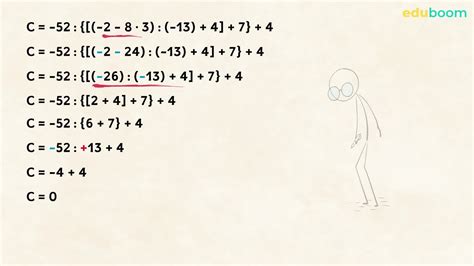 eduboom
C = –52 : {[(–2 – 8 · 3) : (–13) + 4] + 7} + 4
C = –52 : {[(–2 – 24) : (–13) + 4] + 7} + 4
C = –52 : {[(–26) : (–13) + 4] + 7} + 4
C = –52 : {[2 + 4] + 7} + 4
C = –52 : {6 + 7} + 4
C = –52 : +13 + 4
C = –4 + 4
C = 0